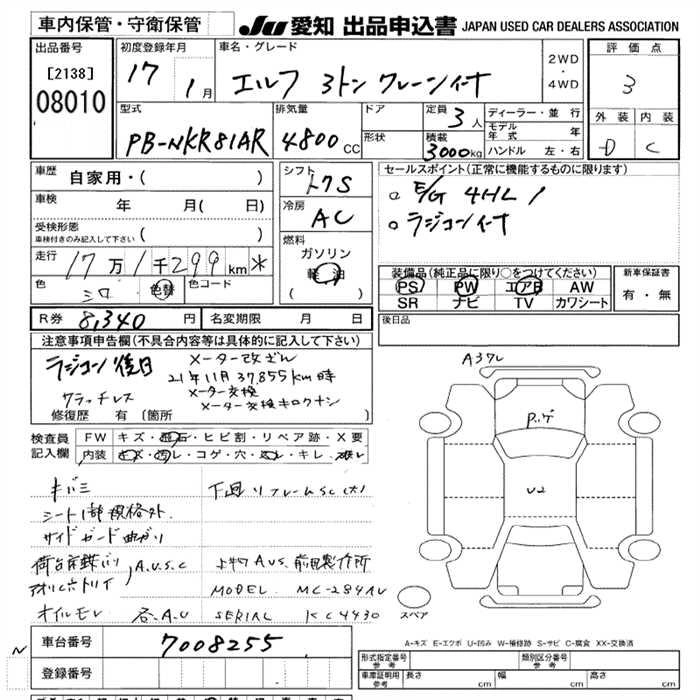 車内保管・守衛保管
JU 愛知 出品申込書 JAPAN USED CAR DEALERS ASSOCIATION
出品番号
[2138]
08010
初度登録年月
17 1月
車名・グレード
エルフ 3トン クレーン付
2WD
・
4WD
評価点
3
外装 内装
D C
型式
PB-NKR81AR
排気量
4800cc
ドア
形状
定員 3人
積載 3000kg
ディーラー・並行
モデル年式 年
ハンドル 左・右
車歴 自家用・( )
車検 年 月( 日)
受検形態
車検付きのみ記入して下さい ( )
走行 17万1千299km *
色 シロ 色替 色コード
シフト
冷房 AC
燃料
ガソリン
軽油
( )
セールスポイント(正常に機能するものに限ります)
E/G 4HL1
ラジコン付
装備品(純正品に限り○をつけてください)
PS PW エアB AW
SR ナビ TV カワシート
新車保証書
有・無
R券 8,340円 名変期限 月 日
後日品
注意事項申告欄(不具合内容等は具体的に記入して下さい)
ラジコン後日
メーター改ざん
21年11月37,855km時
メーター交換
クラッチレス
メーター交換キロクナシ
修復歴 有 [箇所 ]
検査員記入欄
FW キズ・飛石・ヒビ割・リペア跡・X要
内装 キズ・汚レ・コゲ・穴・スレ・キレ
キバミ
下回りフレームSC(大)
シート1部規格外
サイドガード曲がり
荷台床鉄バリ
A.U.S.C
上物AUS 前田製作所
MODEL MC-284AU
オイルモレ
各A.U
SERIAL KC4430
A37L
P.ゲ
U2
スペア
A-キズ E-エクボ U-凹み W-補修跡 S-サビ C-腐食 XX-交換済
N
車台番号 7008255
登録番号
形式指定番号
参考
類別区分番号
参考
車庫証明用
参考
長さ cm
幅 cm
高さ cm